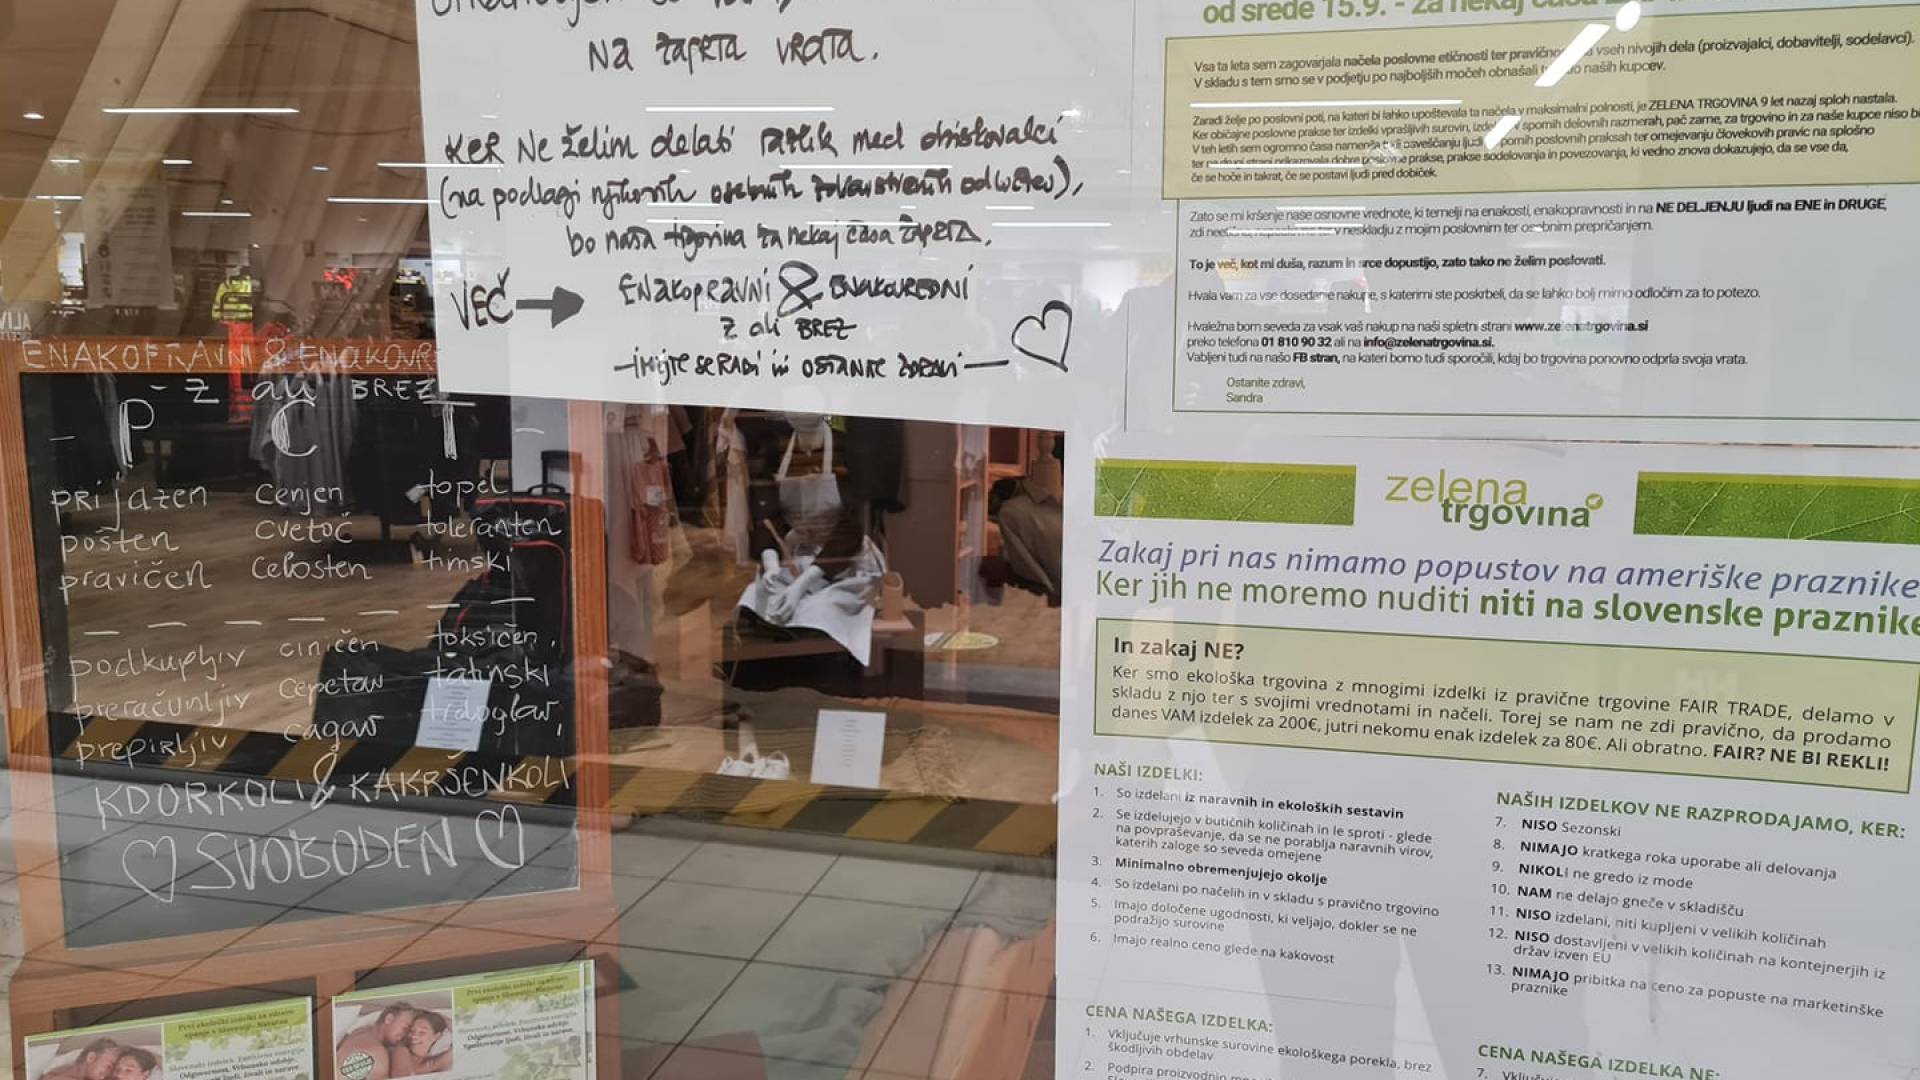 NA ZAPRTA VRATA.
KER NE želim delati razlik med obiskovalci
(na podlagi njihovih osebnih zdravstvenih odločitev),
bo naša trgovina za nekaj časa ZAPRTA.
VEČ
ENAKOPRAVNI & ENAKOVREDNI
Z ali BREZ
- imejte se RADI in OSTANITE ZDRAVI -
ENAKOPRAVNI & ENAKOVR
- Z ali BREZ
- P C T -
prijazen cenjen topel
pošten cvetoč toleranten
pravičen celosten timski
podkupljiv ciničen toksičen,
preračunljiv cepetav tatinski
prepirljiv cagav trdoglav,
KDORKOLI & KAKRŠENKOLI
SVOBODEN
od srede 15.9. - za nekaj časa
Vsa ta leta sem zagovarjala načela poslovne etičnosti ter vseh nivojih dela (proizvajalci, dobavitelji, sodelavci).
V skladu s tem smo se v podjetju po najboljših močeh obnašali naših kupcev.
Zaradi želje po poslovni poti, na kateri bi lahko upoštevala ta načela v maksimalni polnosti, je ZELENA TRGOVINA 9 let nazaj sploh nastala.
Ker običajne poslovne prakse ter izdelki vprašljivih surovin, v spornih delovnih razmerah, pač zame, za trgovino in za naše kupce niso
V teh letih sem ogromno časa osveščanju ljudi spornih poslovnih praksah ter omejevanju človekovih pravic na splošno
ter na drugi strani prikazovala dobre poslovne prakse, prakse sodelovanja in povezovanja, ki vedno znova dokazujejo, da se vse da,
če se hoče in takrat, če se postavi ljudi pred dobiček.
Zato se mi kršenje naše osnovne vrednote, ki temelji na enakosti, enakopravnosti in na NE DELJENJU ljudi na ENE in DRUGE,
zdi v neskladju z mojim poslovnim ter osebnim prepričanjem.
To je več, kot mi duša, razum in srce dopustijo, zato tako ne želim poslovati.
Hvala vam za vse dosedanje nakupe, s katerimi ste poskrbeli, da se lahko bolj mirno odločim za to potezo.
Hvaležna bom seveda za vsak vaš nakup na naši spletni strani www.zelenatrgovina.si
preko telefona 01 810 90 32 ali na info@zelenatrgovina.si.
Vabljeni tudi na našo FB stran, na kateri bomo tudi sporočili, kdaj bo trgovina ponovno odprla svoja vrata.
Ostanite zdravi,
Sandra
zelena
trgovina
Zakaj pri nas nimamo popustov na ameriške praznike
Ker jih ne moremo nuditi niti na slovenske praznike
In zakaj NE?
Ker smo ekološka trgovina z mnogimi izdelki iz pravične trgovine FAIR TRADE, delamo v
skladu z njo ter s svojimi vrednotami in načeli. Torej se nam ne zdi pravično, da prodamo
danes VAM izdelek za 200€, jutri nekomu enak izdelek za 80€. Ali obratno. FAIR? NE BI REKLI!
NAŠI IZDELKI:
1. So izdelani iz naravnih in ekoloških sestavin
2. Se izdelujejo v butičnih količinah in le sproti - glede
na povpraševanje, da se ne porablja naravnih virov,
katerih zaloge so seveda omejene
3. Minimalno obremenjujejo okolje
4. So izdelani po načelih in v skladu s pravično trgovino
5. Imajo določene ugodnosti, ki veljajo, dokler se ne
podražijo surovine
6. Imajo realno ceno glede na kakovost
NAŠIH IZDELKOV NE RAZPRODAJAMO, KER:
7. NISO Sezonski
8. NIMAJO kratkega roka uporabe ali delovanja
9. NIKOLI ne gredo iz mode
10. NAM ne delajo gneče v skladišču
11. NISO izdelani, niti kupljeni v velikih količinah
12. NISO dostavljeni v velikih količinah na kontejnerjih iz
držav izven EU
13. NIMAJO pribitka na ceno za popuste na marketinške
praznike
CENA NAŠEGA IZDELKA:
1. Vključuje vrhunske surovine ekološkega porekla, brez
škodljivih obdelav
2. Podpira proizvodnjo
CENA NAŠEGA IZDELKA NE:
7.